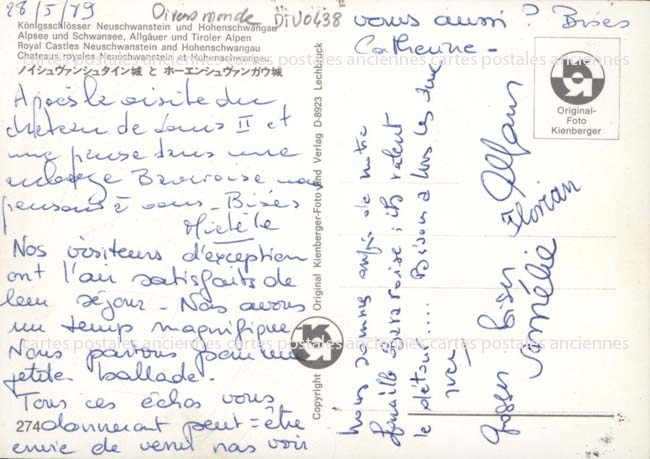 28/5/79
Divers monde
DIV0438
Königsschlösser Neuschwanstein und Hohenschwangau
Alpsee und Schwansee, Allgäuer und Tiroler Alpen
Royal Castles Neuschwanstein and Hohenschwangau
Chateaux royales Neuschwanstein et Hohenschwangau
ノイシュヴァンシュタイン城 と ホーエンシュヴァンガウ城
Après la visite du
château de Louis II et
une pause dans une
auberge Bavaroise nous
pensons à vous - Bises
Michèle
Nos visiteurs d'exception
ont l'air satisfaits de
leur séjour - Nous avons
un temps magnifique.
Nous partons pour une
petite ballade.
Tous ces échos vous
donneront peut-être
envie de venir nous voir
vous aussi ? Bises
Catherine -
274
Copyright Original Kienberger-Foto und Verlag D-8923 Lechbruck
Original-
Foto
Kienberger
Nous sommes de notre
famille Bavaroise ; ils valent
le détour..... Bisous à tous les
Grosses bises
Florian
Amélie
cartes postales anciennes cartes postales anciennes cartes postales anciennes
cartes postales anciennes cartes postales anciennes cartes postales anciennes